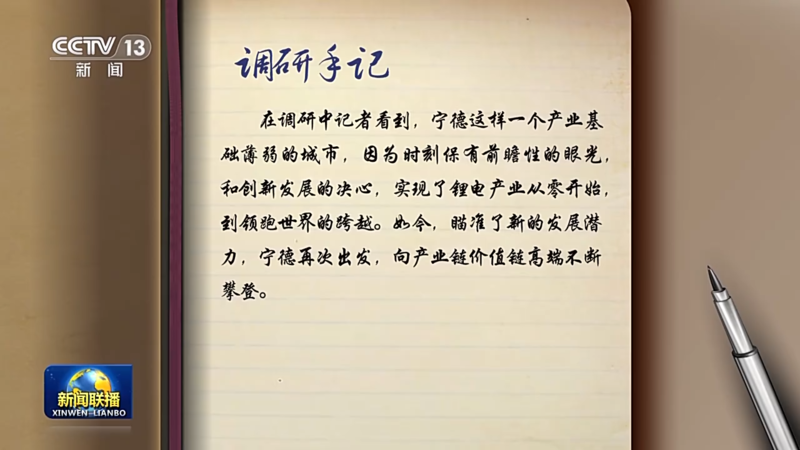 CCTV 13
新闻
调研手记
在调研中记者看到，宁德这样一个产业基
础薄弱的城市，因为时刻保有前瞻性的眼光，
和创新发展的决心，实现了锂电产业从零开始，
到领跑世界的跨越。如今，瞄准了新的发展潜
力，宁德再次出发，向产业链价值链高端不断
攀登。
新闻联播
XINWEN-LIANBO